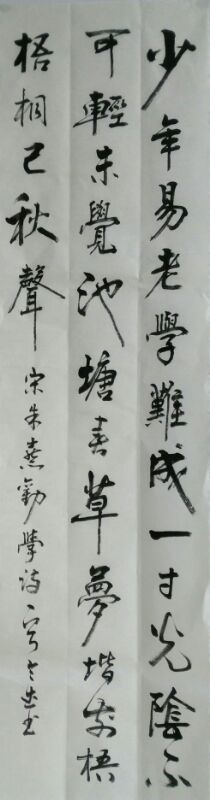 少年易老學難成一寸光陰不
可輕未覺池塘春草夢堦前梧
梧桐已秋聲宋朱熹勸學詩